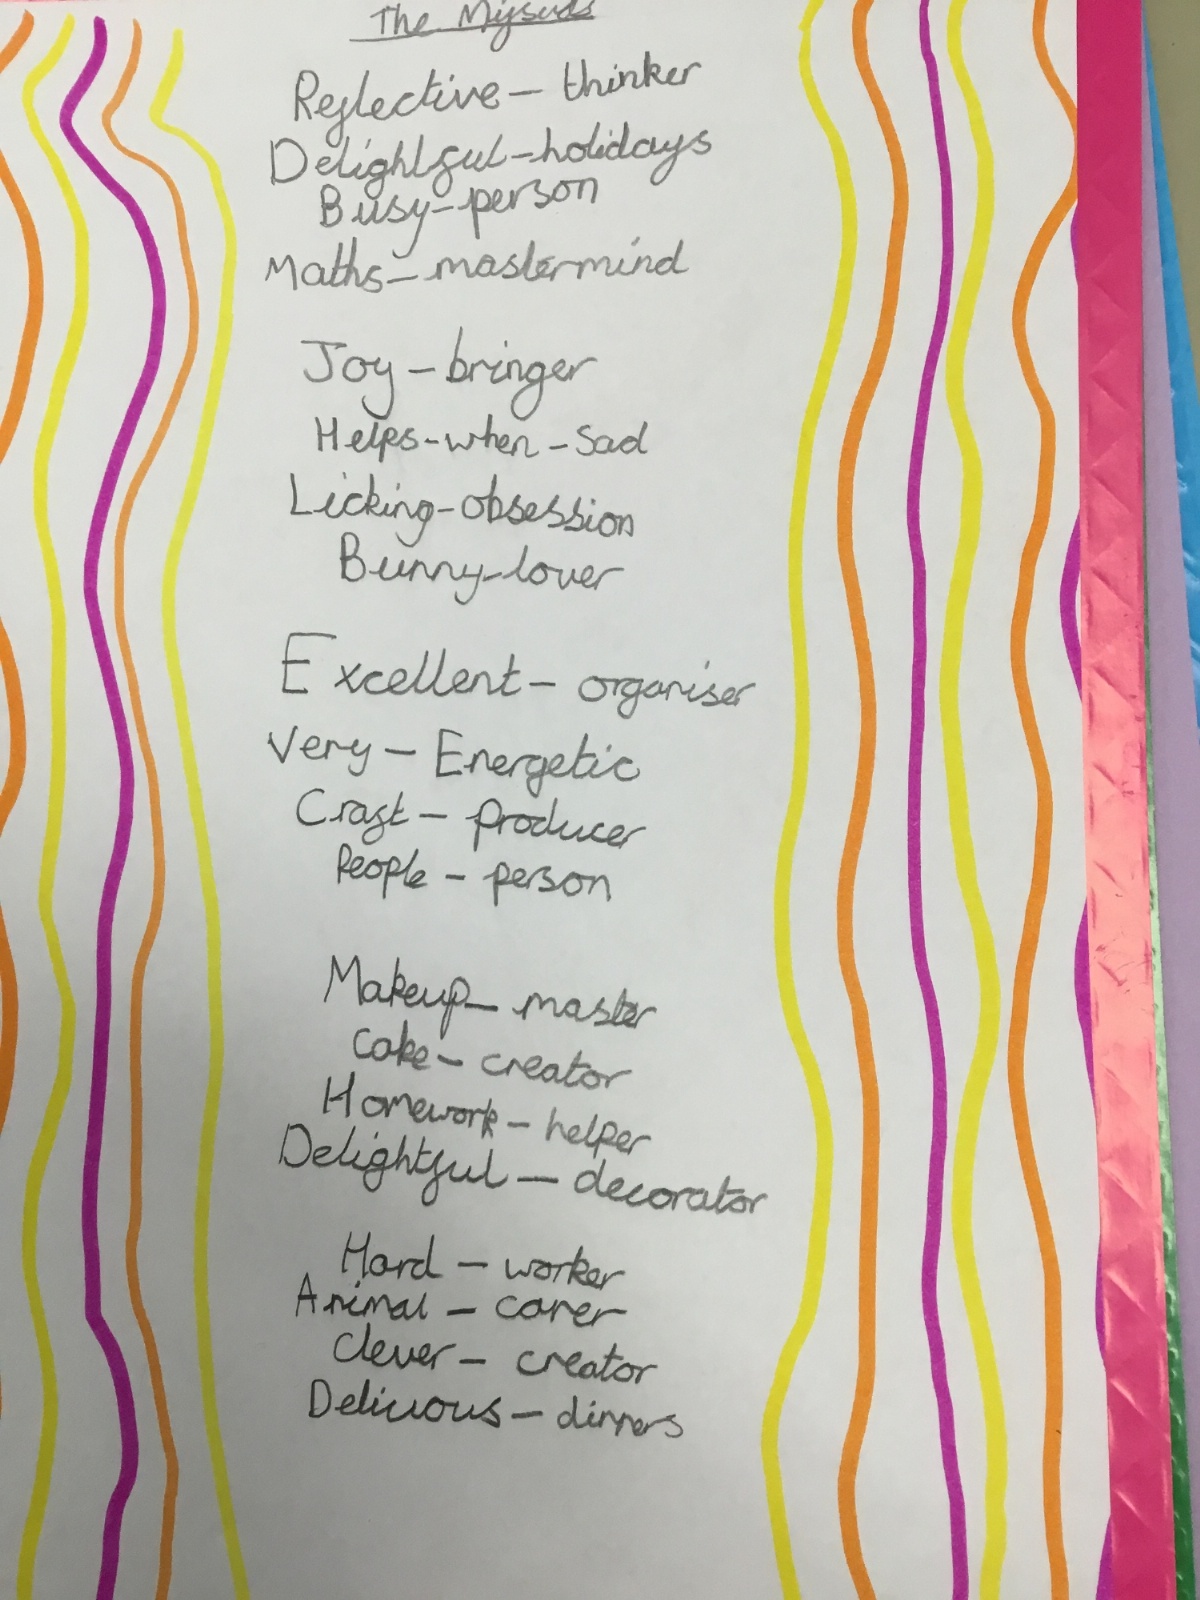 The
Reflective - thinker
Delightful - holidays
Busy - person
Maths - mastermind
Joy - bringer
Helps - when - sad
Licking - obsession
Bunny - lover
Excellent - organiser
Very - Energetic
Craft - producer
People - person
Makeup - master
Cake - creator
Homework - helper
Delightful - decorator
Hard - worker
Animal - carer
Clever - creator
Delicuous - dinners